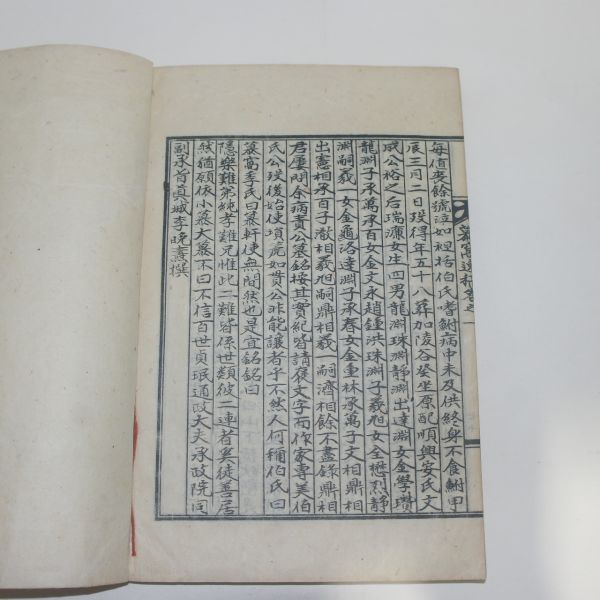 每值麥餘號泣如袒括伯氏嗜鮒病中未及供終身不食鮒甲
辰三月二日歿得年五十八葬加陵谷癸坐原配順興安氏文
成公裕之后瑞濂女生四男龍淵珠淵靜淵出達淵女金學瓚
龍淵子承萬承百女金文永趙鍾洪珠淵子羲旭女全懋烈靜
淵嗣羲一女金龜洛達淵子承春女金重林承萬子文相鼎相
出憲相承百子澈相羲旭嗣鼎相羲一嗣濟相餘不盡錄鼎相
君屢閒余病責公墓銘按其實紀皆請褒文字而作家專美伯
氏公歿後始使塤箎如貫公非能讓者乎不然人何稱伯氏曰
篆窩季氏曰篆軒使無間然也是宜銘銘曰
隱樂難弟純孝難兄惟此二難皆係世類彼二連者無徒善居
然猶願依小篆大篆不曰不信百世貞珉通政大夫承政院同
副承旨眞城李晚燾撰
窩逸稿卷之一